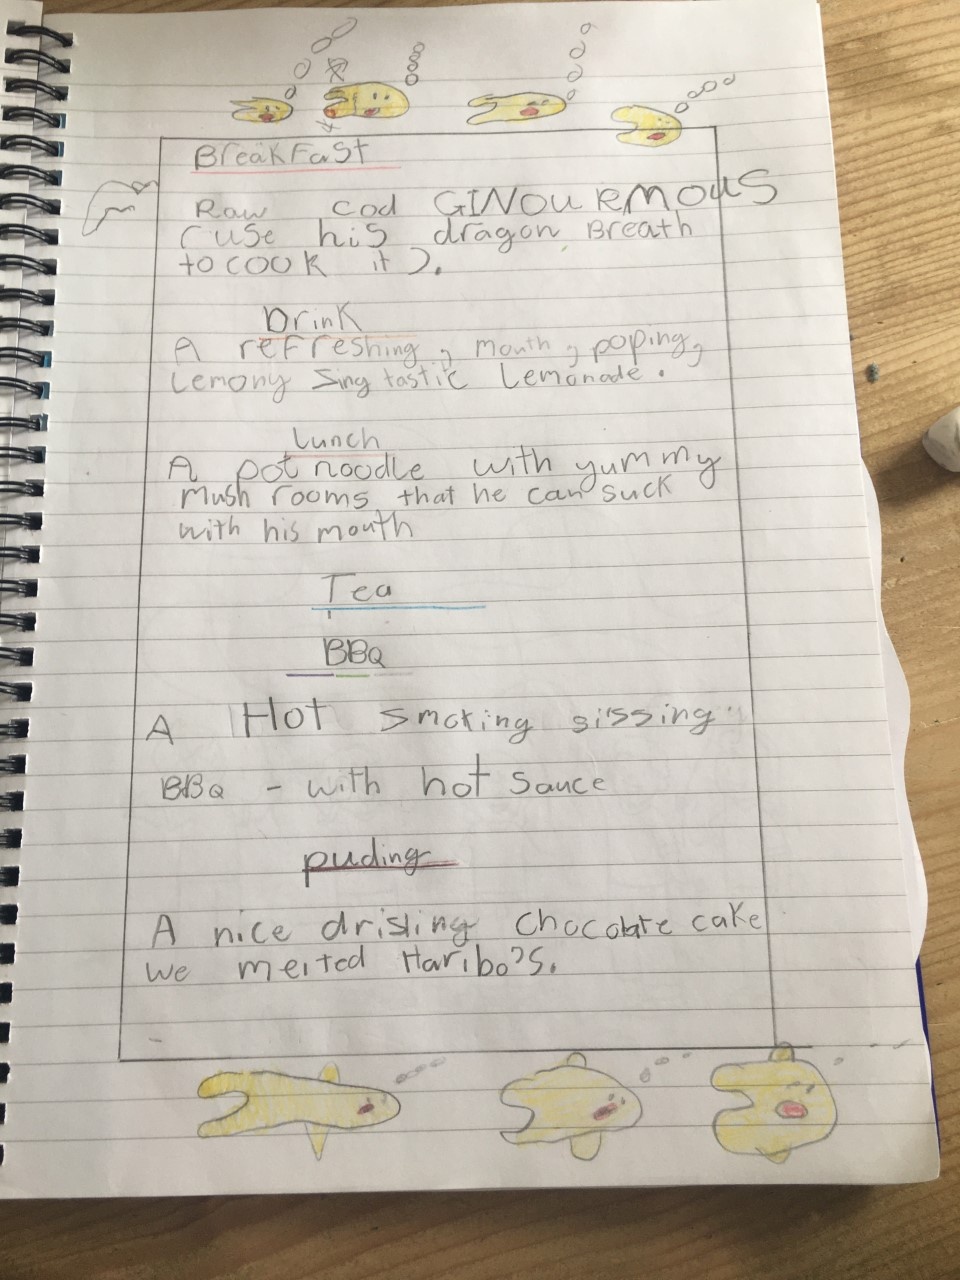 BreakFast
Raw cod GINOuRMOUS
(use his dragon Breath
to cook it).
Drink
A refreshing, mouth, poping,
Lemony Singtastic Lemonade.
Lunch
A pot noodle with yummy
Mushrooms that he can suck
with his mouth
Tea
BBQ
A Hot smoking sissing
BBQ - with hot sauce
puding
A nice drisling Chocolate cake
we melted Haribo's.